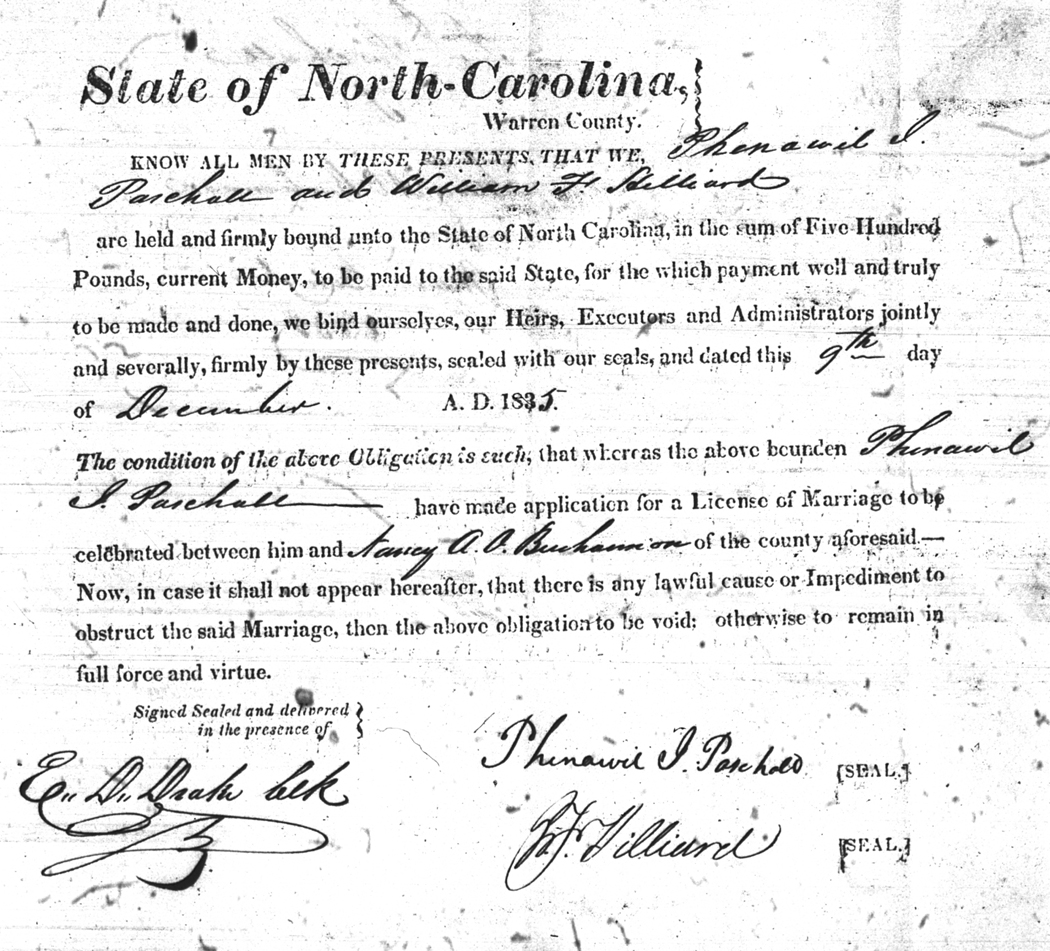 State of North-Carolina,
Warren County.
KNOW ALL MEN BY THESE PRESENTS, THAT WE, Phenawil I.
Paschall and William F Hilliard
are held and firmly bound unto the State of North Carolina, in the sum of Five Hundred
Pounds, current Money, to be paid to the said State, for the which payment well and truly
to be made and done, we bind ourselves, our Heirs, Executors and Administrators jointly
and severally, firmly by these presents, sealed with our seals, and dated this 9th day
of December. A. D. 1835.
The condition of the above Obligation is such, that whereas the above bounden Phenawil
I. Paschall have made application for a License of Marriage to be
celebrated between him and Nancy A. O. Buchannion of the county aforesaid.—
Now, in case it shall not appear hereafter, that there is any lawful cause or Impediment to
obstruct the said Marriage, then the above obligation to be void; otherwise to remain in
full force and virtue.
Signed Sealed and delivered
in the presence of
Phenawil I. Paschall [SEAL.]
E. D. Drake Clk
W. F. Hilliard [SEAL.]